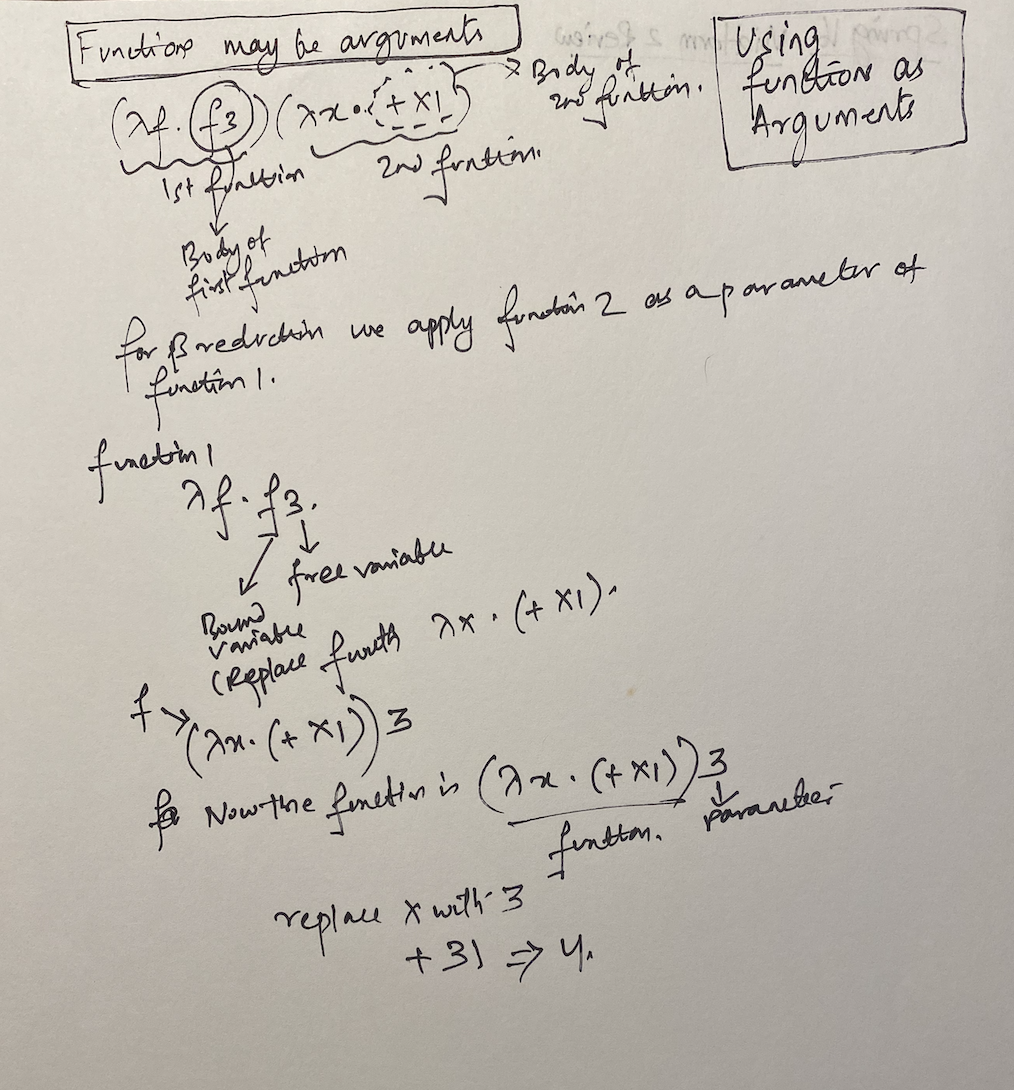 Functions may be arguments
Using
function as
Arguments
(λf. (f3)) (λx. (+ x1))
Body of
2nd function.
1st function
2nd function.
Body of
first function
for β reduction we apply function 2 as a parameter of
function 1.
function 1
λf. f3.
free variable
Bound
variable
(Replace f with λx. (+ x1).
f → (λx. (+ x1)) 3
Now the function is (λx. (+ x1)) 3
function. parameter
replace x with 3
+ 31 ⇒ 4.